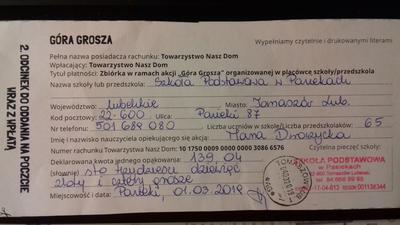 GÓRA GROSZA
Wypełniamy czytelnie i drukowanymi literami
2. ODCINEK DO ODDANIA NA POCZCIE
WRAZ Z WPŁATĄ
Pełna nazwa posiadacza rachunku: Towarzystwo Nasz Dom
Wpłacający: Towarzystwo Nasz Dom
Tytuł płatności: Zbiórka w ramach akcji „Góra Grosza” organizowanej w placówce szkoły/przedszkola
Nazwa szkoły lub przedszkola: Szkoła Podstawowa w Pasiekach
Województwo: lubelskie Miasto: Tomaszów Lub.
Kod pocztowy: 22-600 Ulica: Pasieki 87
Nr telefonu: 501 689 080 Liczba uczniów w szkole/Liczba przedszkolaków: 65
Imię i nazwisko nauczyciela opiekującego się akcją: Marta
Numer rachunku Towarzystwa Nasz Dom: 10 1750 0009 0000 0000 3086 6576 Czytelna pieczęć szkoły:
Deklarowana kwota jednego opakowania: 139,04
(słownie) sto trzydzieści dziewięć
złoty i cztery grosze
Miejscowość i data: Pasieki, 01.03.2018
TOMASZÓW
SZKOŁA PODSTAWOWA
w Pasiekach
22-600 Tomaszów Lubelski